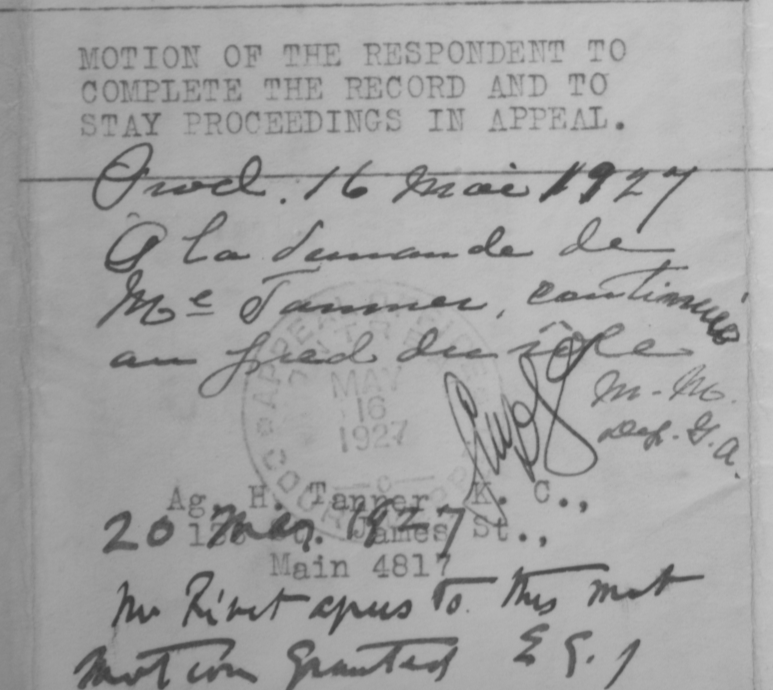 MOTION OF THE RESPONDENT TO
COMPLETE THE RECORD AND TO
STAY PROCEEDINGS IN APPEAL.
Prod. 16 Mai 1927
A la demande de
Me Tanner, continuée
au pied du rôle
M.-M.
Dep. G. A.
APPEAL
MAY
16
1927
Ag. H. Tanner K. C.,
James St.,
Main 4817
20 May. 1927
Mr Rivet agrees to this mot
Motion granted E G. J